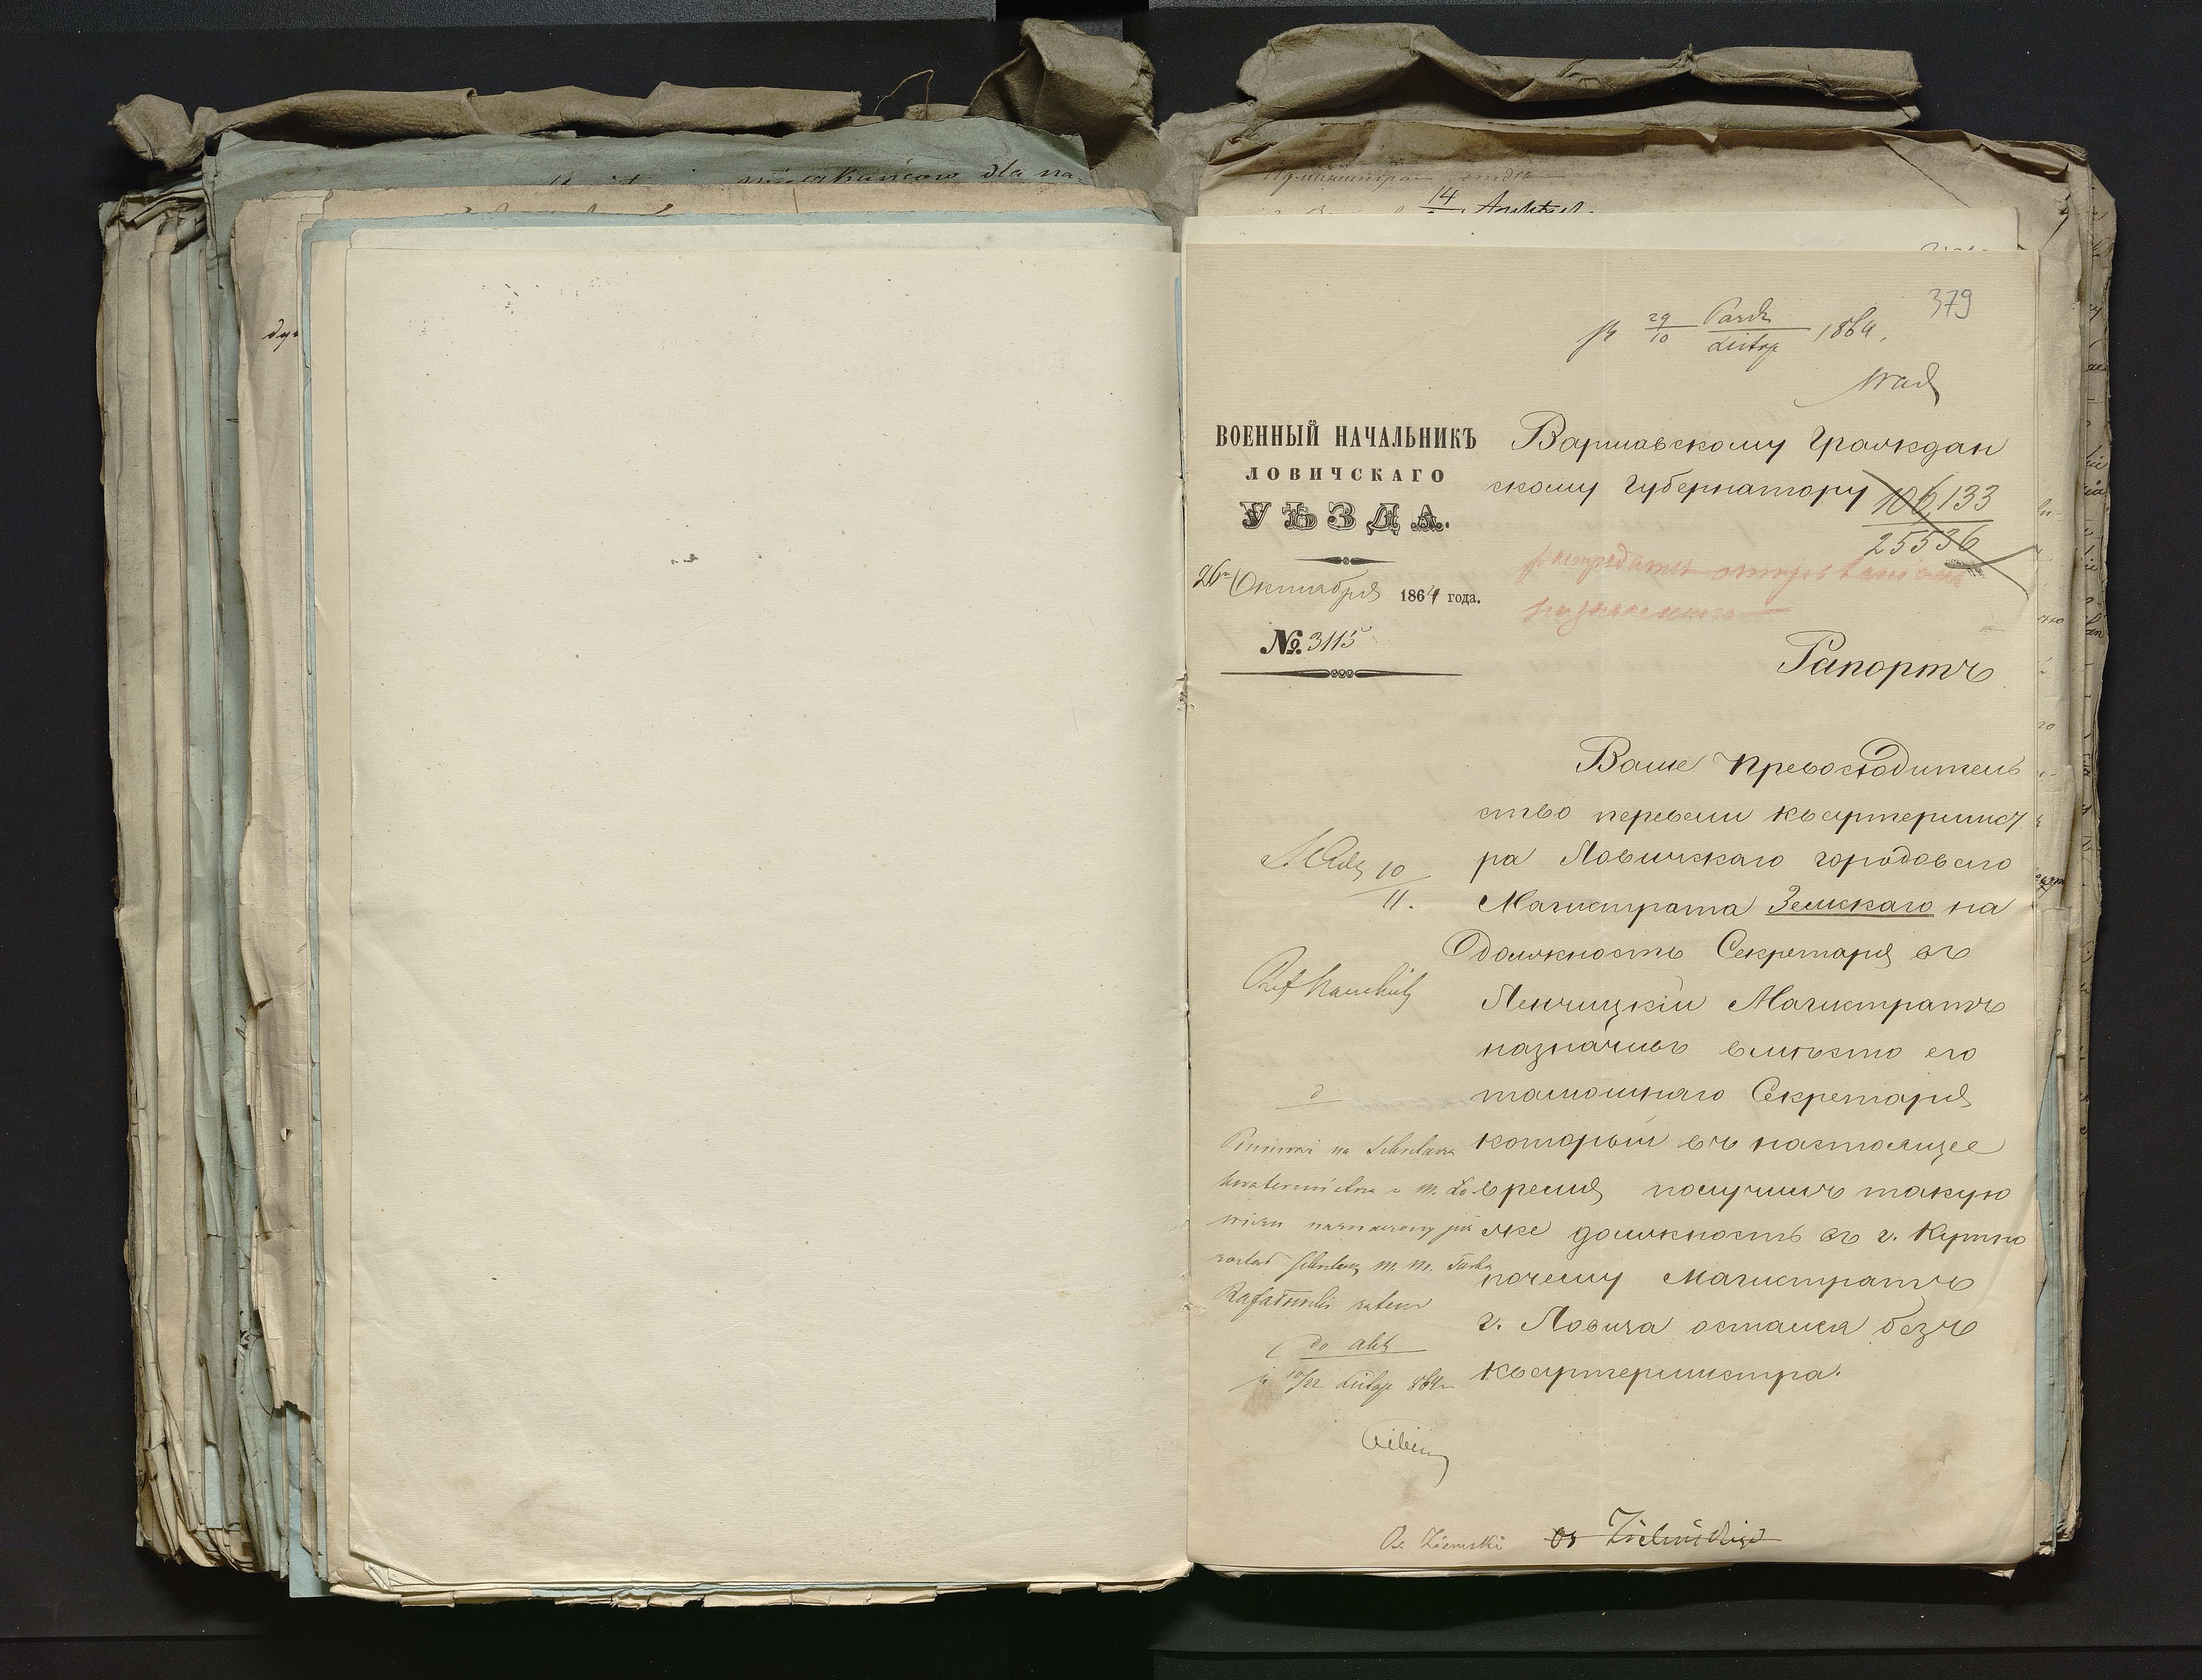 379
29/10 Pazdz/Listop 1864.
ВОЕННЫЙ НАЧАЛЬНИКЪ
ЛОВИЧСКАГО
УѢЗДА.
26го Октября 1864 года.
№. 3115
Варшавскому Граждан
скому Губернатору
106,133
25536
Рапортъ
Ваше Превосходитель
ство перевели квартермист
ра Ловичскаго городоваго
Магистрата Земскаго на
должность Секретаря въ
Ленчицкій Магистратъ
назначивъ вмѣсто его
тамошняго Секретаря
который въ настоящее
время получилъ такую
же должность въ г. Кутно
почему Магистратъ
г. Ловича остался безъ
квартермистра.
10/11.
na
kwatermistrza w m. Ło
wiczu naznaczony już
został m. m.
Rafałowski zatem
do akt
10/22 Listop 864
Os. Ziemski